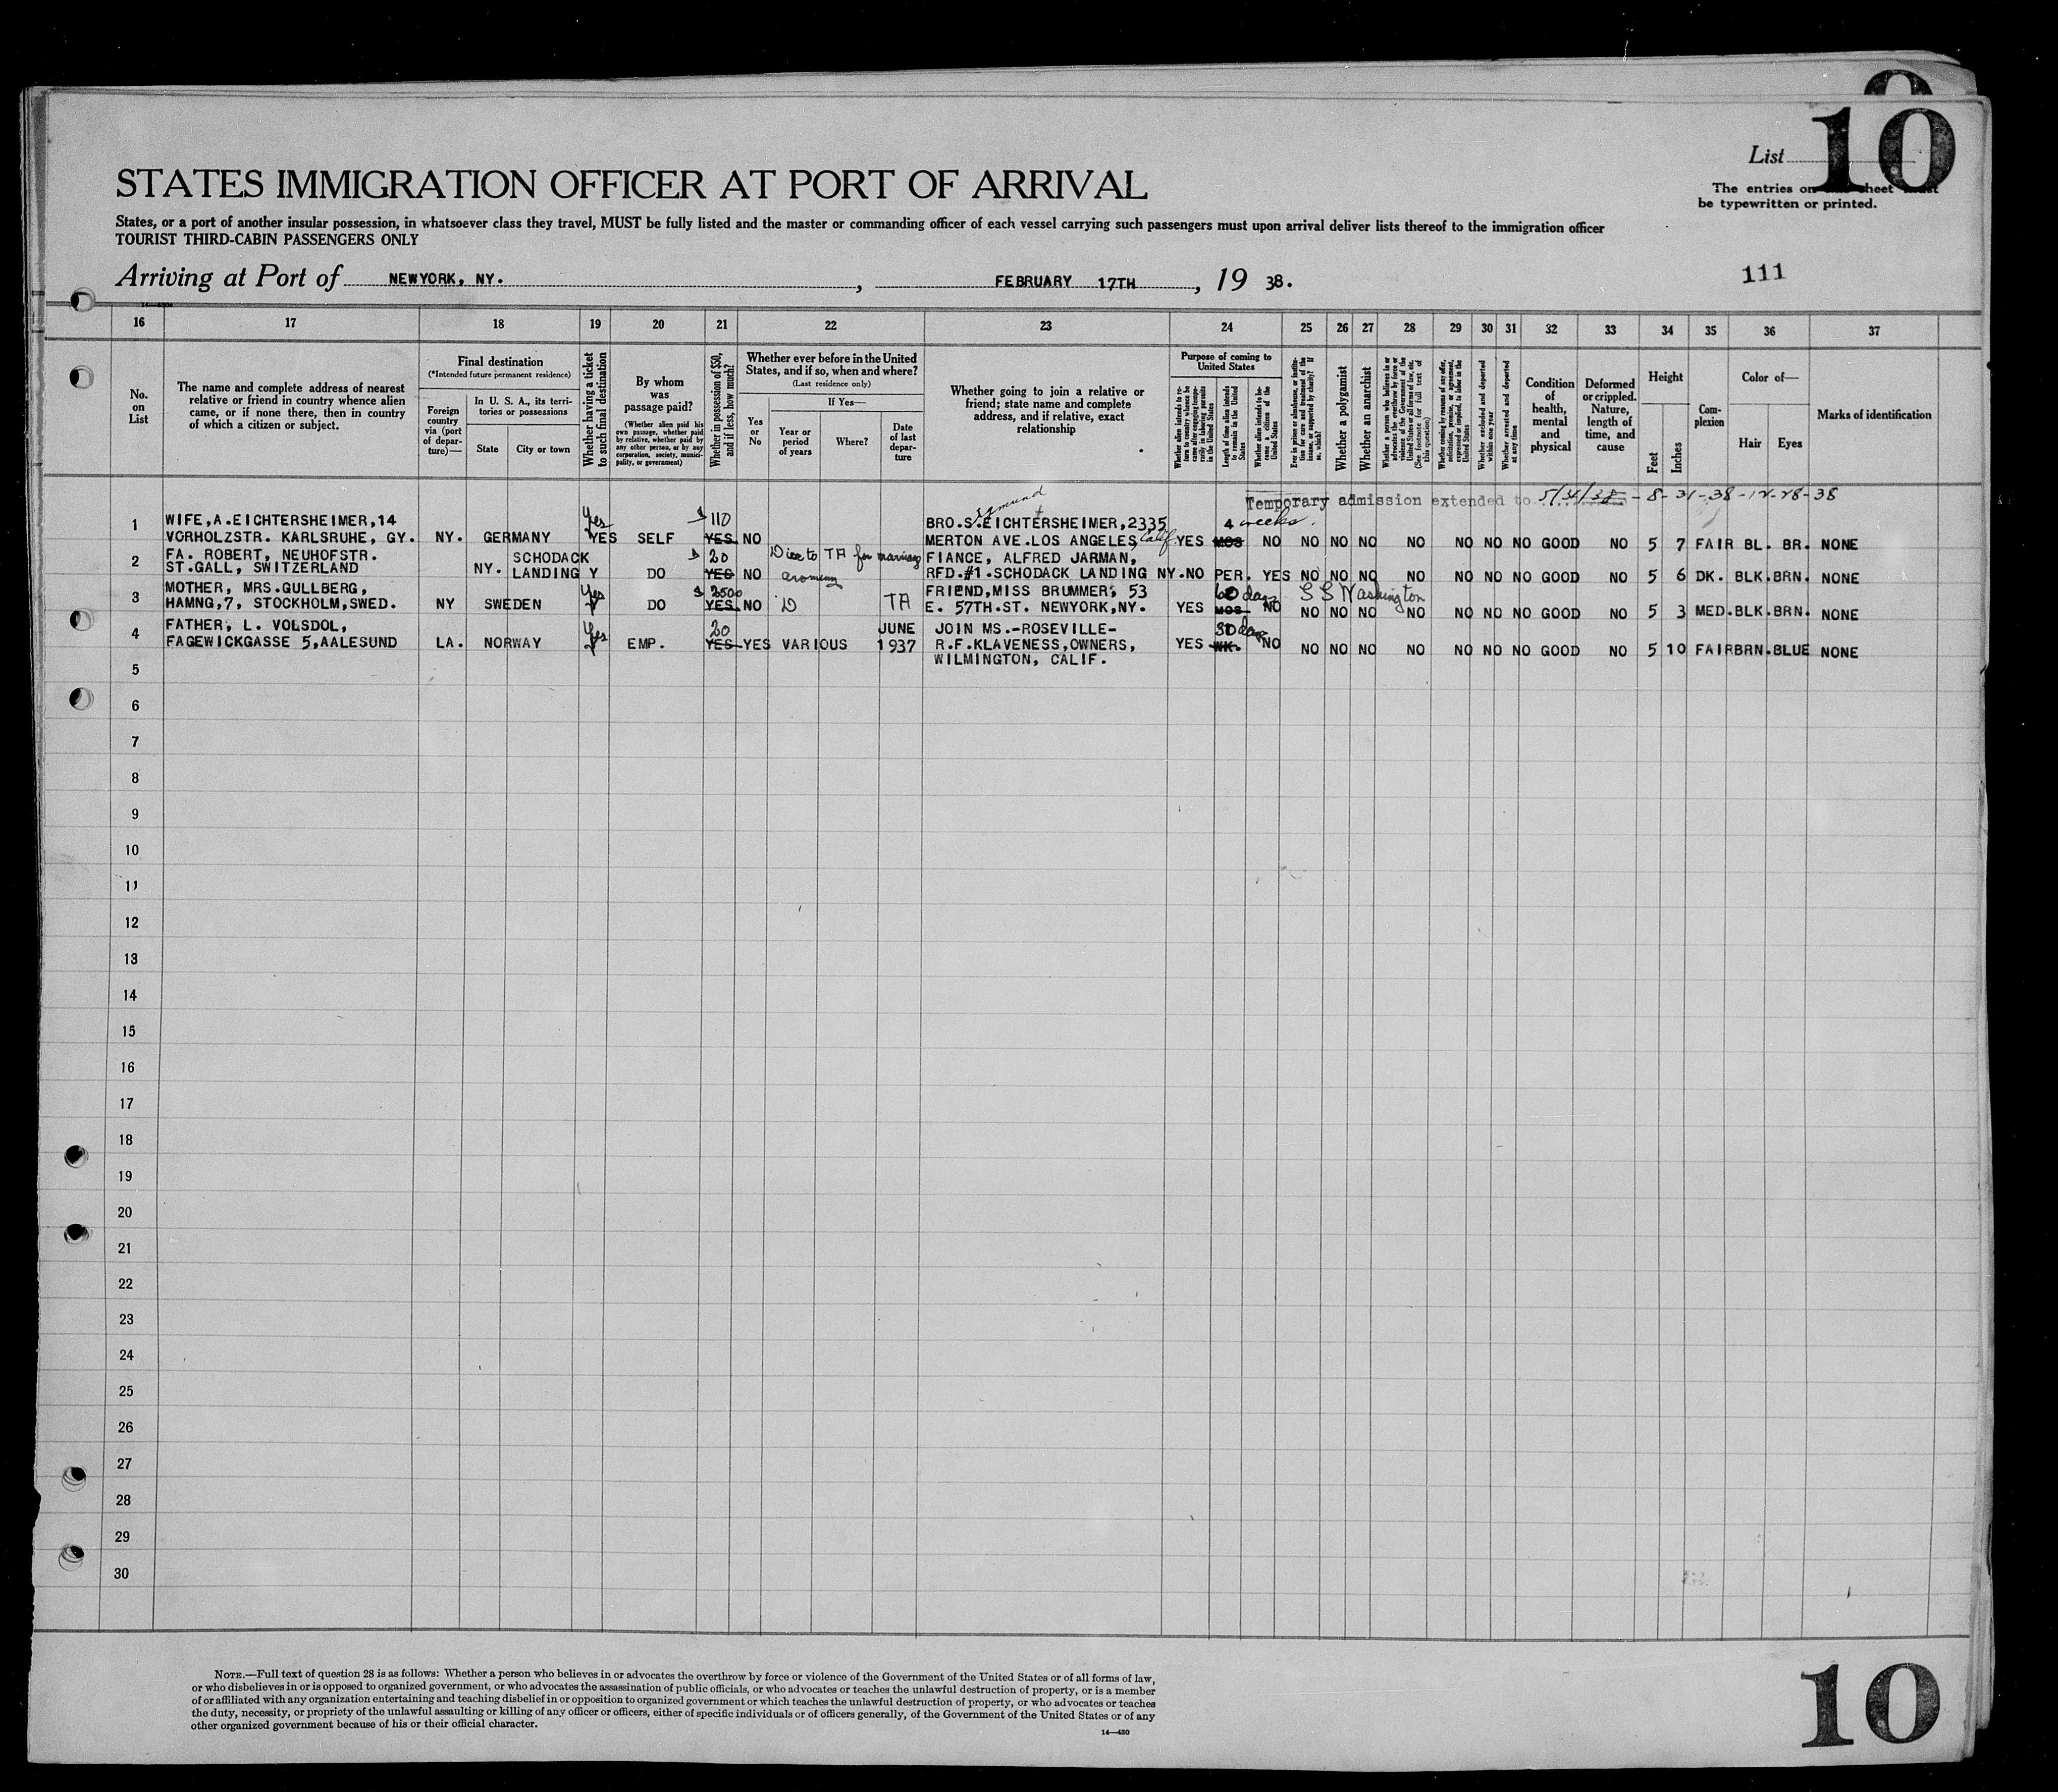 10
List
The entries on sheet must
be typewritten or printed.
STATES IMMIGRATION OFFICER AT PORT OF ARRIVAL
States, or a port of another insular possession, in whatsoever class they travel, MUST be fully listed and the master or commanding officer of each vessel carrying such passengers must upon arrival deliver lists thereof to the immigration officer
TOURIST THIRD-CABIN PASSENGERS ONLY
Arriving at Port of NEWYORK, NY. , FEBRUARY 17TH , 19 38.
111
16 17 18 19 20 21 22 23 24 25 26 27 28 29 30 31 32 33 34 35 36 37
No. on List
The name and complete address of nearest
relative or friend in country whence alien
came, or if none there, then in country
of which a citizen or subject.
Final destination
(*Intended future permanent residence)
Foreign country via (port of departure)—
In U. S. A., its territories or possessions
State
City or town
Whether having a ticket to such final destination
By whom was passage paid?
(Whether alien paid his own passage, whether paid by relative, whether paid by any other person, or by any corporation, society, municipality, or government)
Whether in possession of $50, and if less, how much?
Whether ever before in the United
States, and if so, when and where?
(Last residence only)
Yes or No
If Yes—
Year or period of years
Where?
Date of last departure
Whether going to join a relative or
friend; state name and complete
address, and if relative, exact
relationship
Purpose of coming to
United States
Length of time alien intends to remain in the United States
Whether alien intends to become a citizen of the United States
Whether a polygamist
Whether an anarchist
Whether excluded and deported within one year
Whether arrested and deported at any time
Condition of health, mental and physical
Deformed or crippled. Nature, length of time, and cause
Height
Feet
Inches
Complexion
Color of—
Hair
Eyes
Marks of identification
Temporary admission extended to 5/31/38 - 8-31-38-12-28-38
1 WIFE,A.EICHTERSHEIMER,14 Yes $110 BRO.S.EICHTERSHEIMER,2335 4 weeks.
VORHOLZSTR. KARLSRUHE, GY. NY. GERMANY YES SELF YES NO MERTON AVE.LOS ANGELES Calif YES MOS NO NO NO NO NO NO NO NO GOOD NO 5 7 FAIR BL. BR. NONE
2 FA. ROBERT, NEUHOFSTR. SCHODACK $ 20 to TA for marriage FIANCE, ALFRED JARMAN,
ST.GALL, SWITZERLAND NY. LANDING Y DO YES NO RFD.#1.SCHODACK LANDING NY.NO PER. YES NO NO NO NO NO NO NO GOOD NO 5 6 DK. BLK.BRN. NONE
3 MOTHER, MRS.GULLBERG, Yes $ 2500 FRIEND,MISS BRUMMER, 53 60 days S S Washington
HAMNG,7, STOCKHOLM,SWED. NY SWEDEN DO YES NO D TA E. 57TH.ST. NEWYORK,NY. YES MOS NO NO NO NO NO NO NO NO GOOD NO 5 3 MED.BLK.BRN. NONE
4 FATHER, L. VOLSDOL, Yes 20 JUNE JOIN MS.-ROSEVILLE- 30 days
FAGEWICKGASSE 5,AALESUND LA. NORWAY EMP. YES YES VARIOUS 1937 R.F.KLAVENESS,OWNERS, YES WK. NO NO NO NO NO NO NO NO GOOD NO 5 10 FAIR BRN.BLUE NONE
WILMINGTON, CALIF.
5
6
7
8
9
10
11
12
13
14
15
16
17
18
19
20
21
22
23
24
25
26
27
28
29
30
NOTE.—Full text of question 28 is as follows: Whether a person who believes in or advocates the overthrow by force or violence of the Government of the United States or of all forms of law,
or who disbelieves in or is opposed to organized government, or who advocates the assassination of public officials, or who advocates or teaches the unlawful destruction of property, or is a member
of or affiliated with any organization entertaining and teaching disbelief in or opposition to organized government or which teaches the unlawful destruction of property, or who advocates or teaches
the duty, necessity, or propriety of the unlawful assaulting or killing of any officer or officers, either of specific individuals or of officers generally, of the Government of the United States or of any
other organized government because of his or their official character.
14—430
10